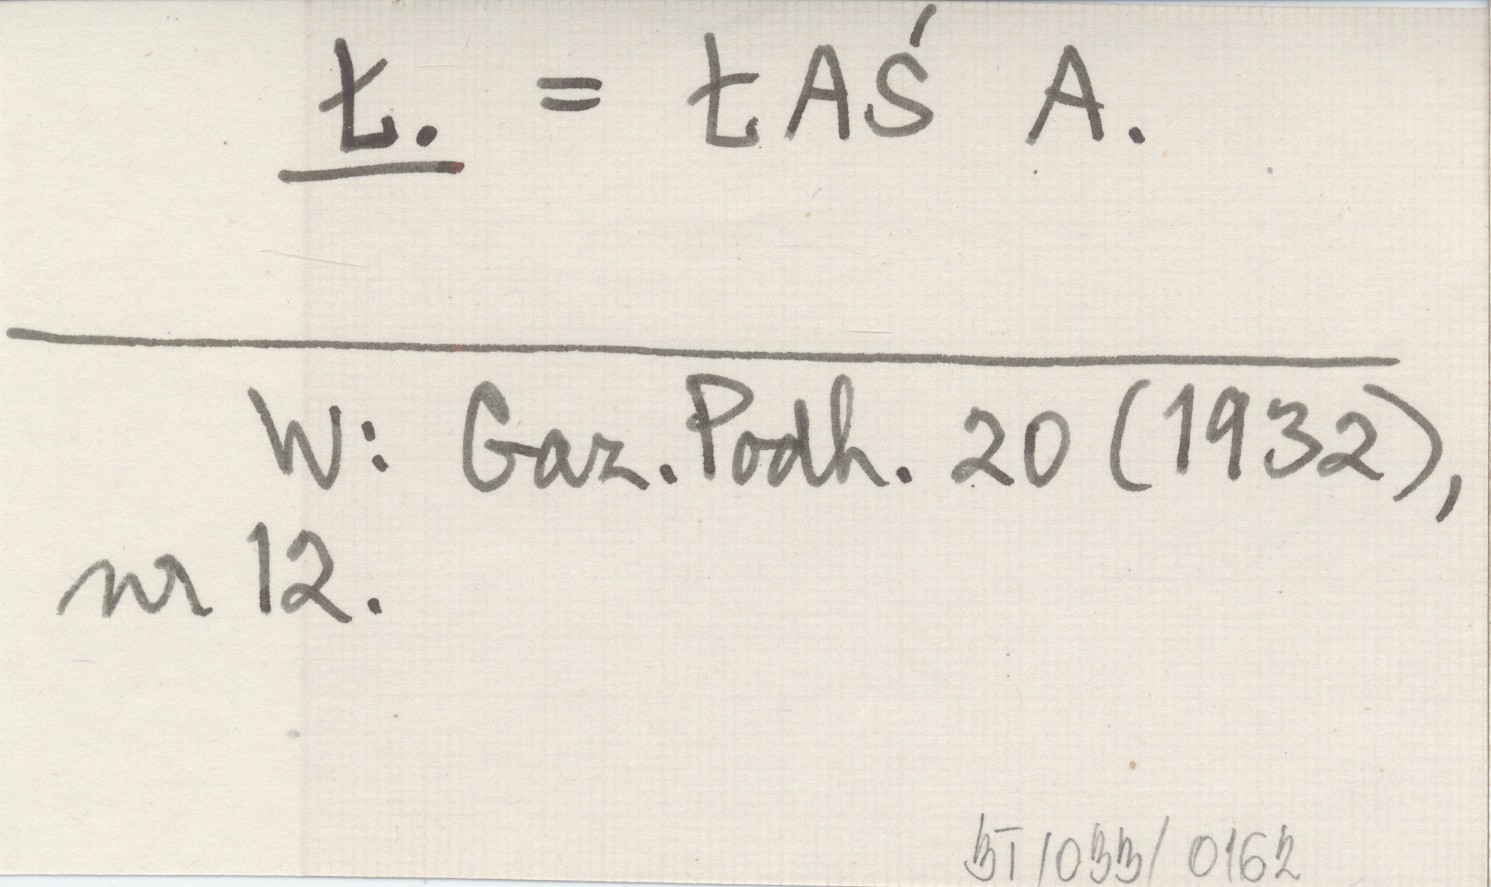 Ł. = ŁAŚ A.
W: Gaz. Podh. 20 (1932),
nr 12.
BT/033/0162